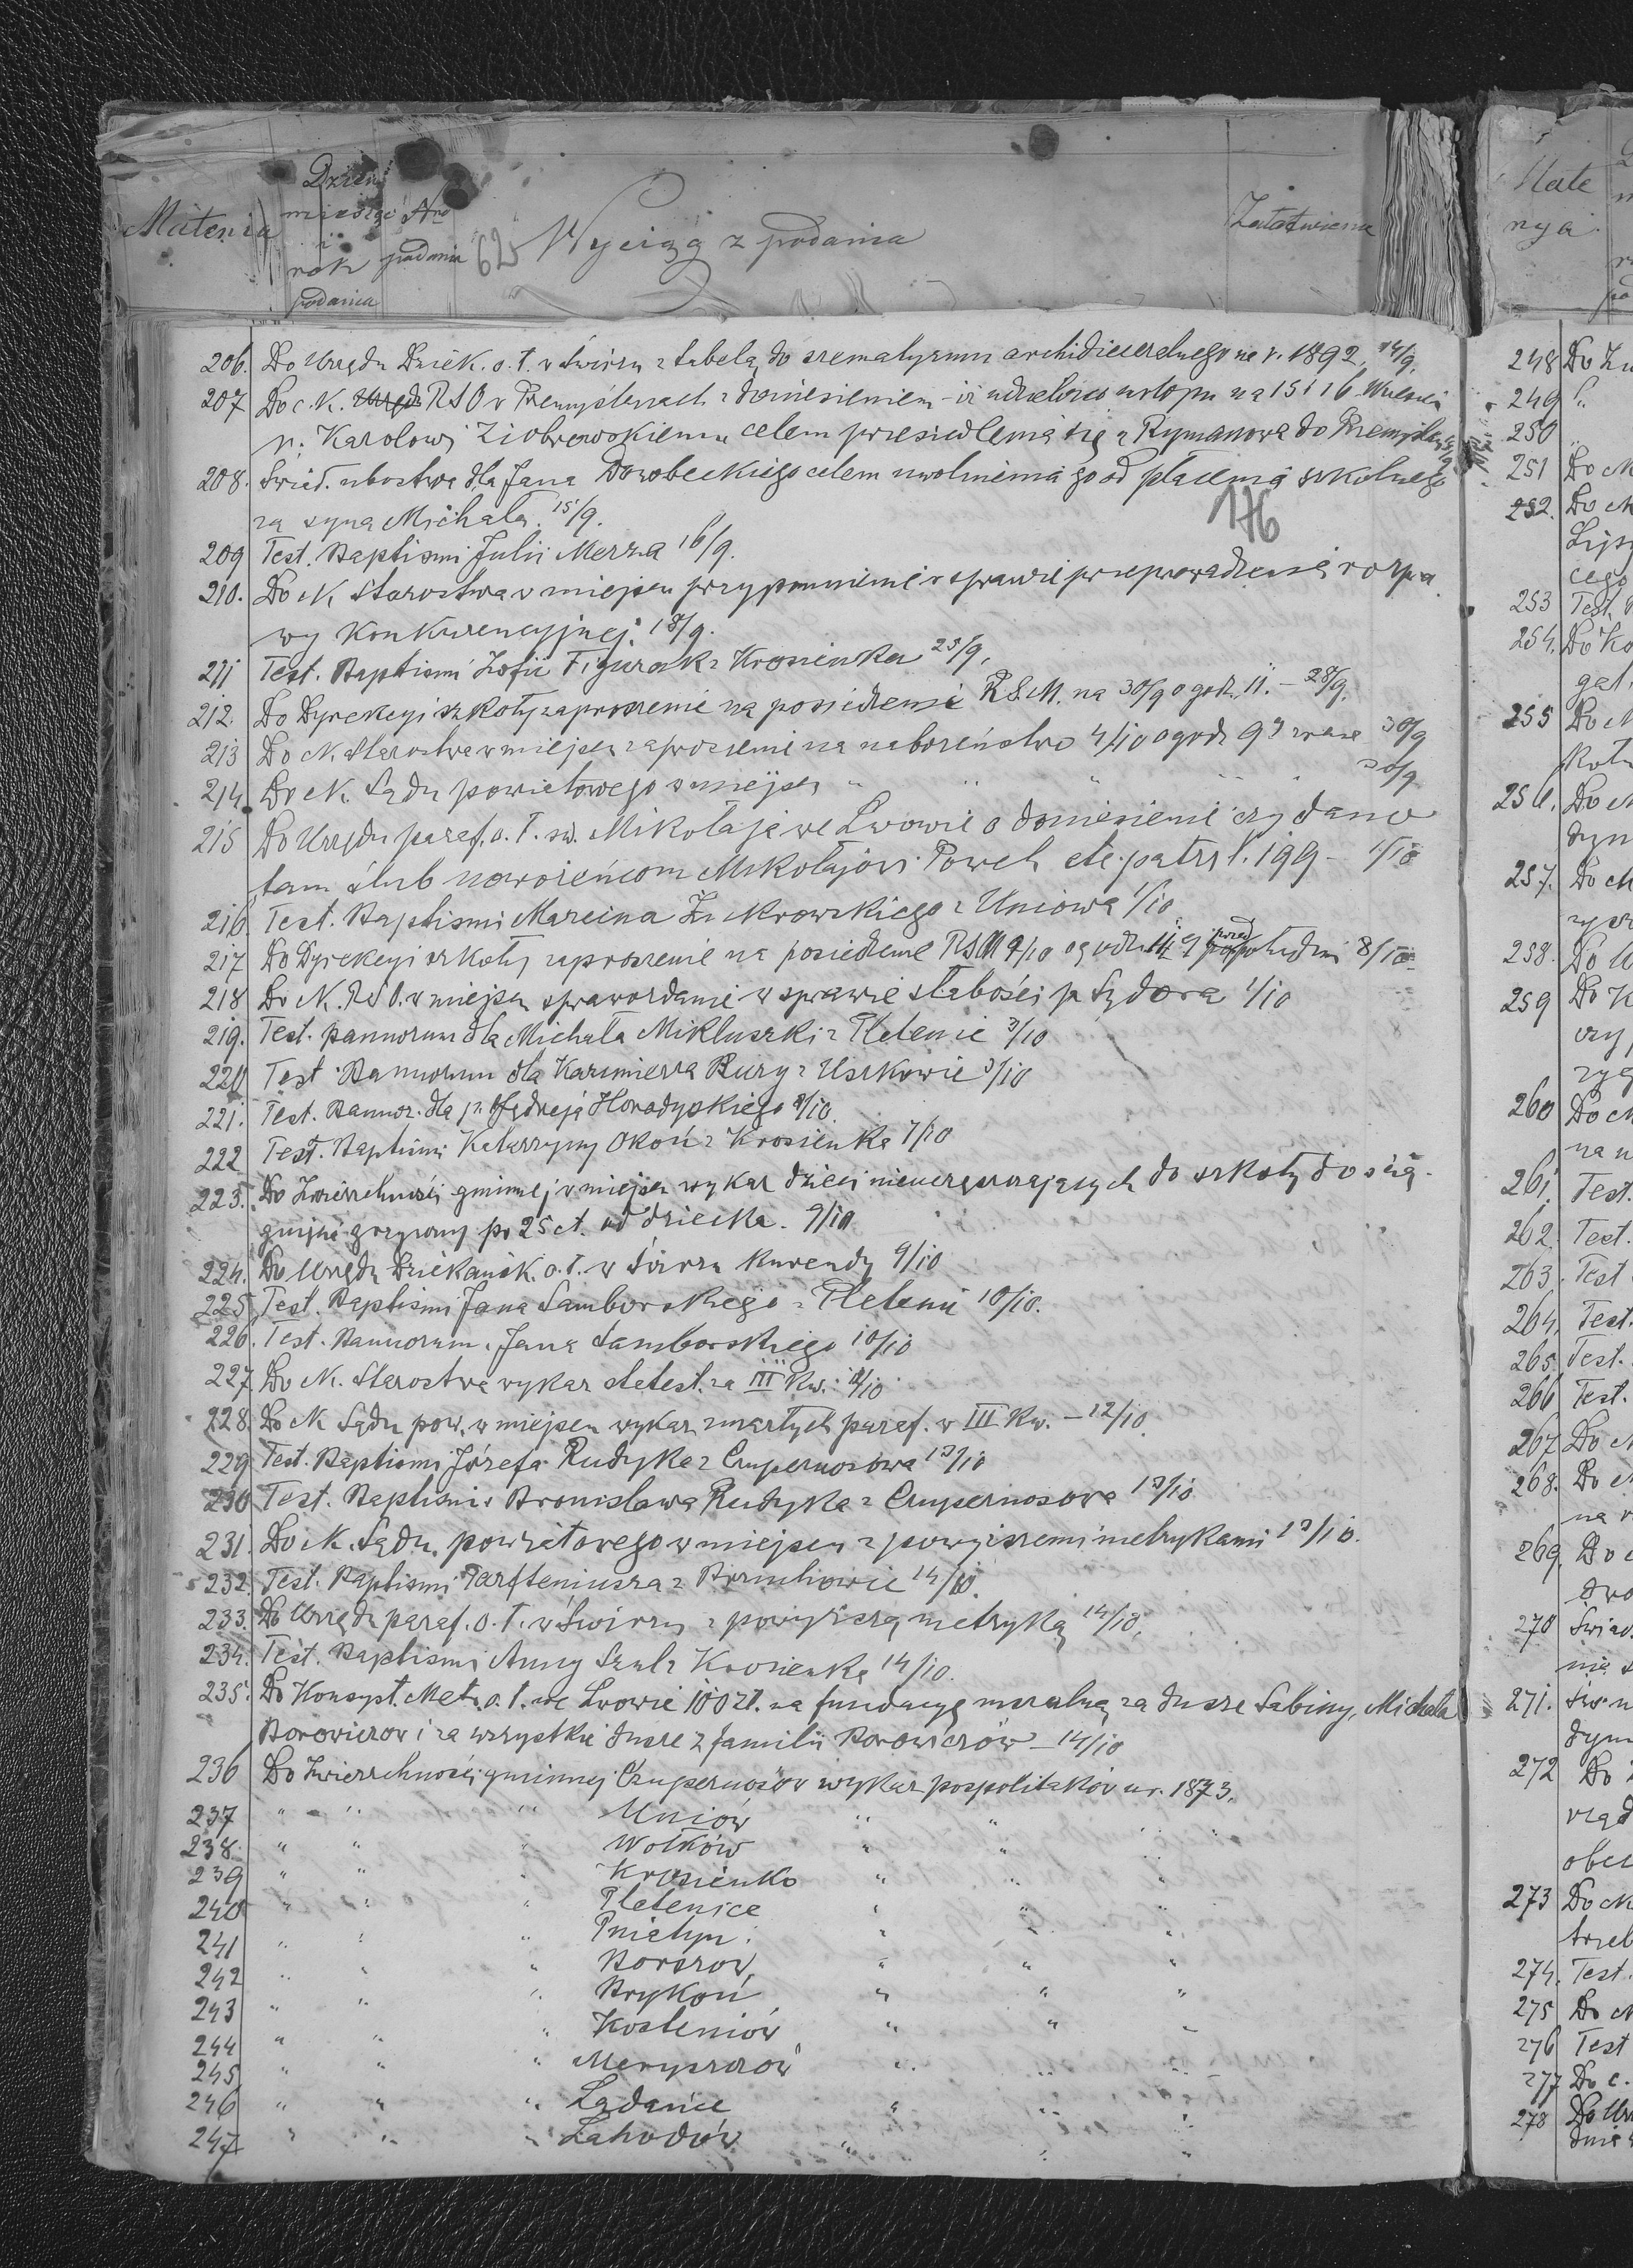 Materia
Dzień miesiąc i rok podania
Nro podania
62
Wyciąg z podania
Załatwienie
206. Do Urzędu Dziek. o. ł. w Świrzu z tabelą do szematyzmu archidiecezalnego na r. 1892. 14/9.
207 Do c. K. RSO w Przemyślanach z doniesieniem iż udzielono urlopu na 15 i 16 Wrześn
p. Karolowi Ziobrowskiemu celem przesiedlenia się z Rymanowa do Przemyślan
208. Świad. ubóstwa dla Jana Dorobeckiego celem uwolnienia go od płacenia szkolnego
za syna Michała. 15/9.
176
209 Test. Baptismi Julii Merza 16/9.
210. Do K. Starostwa w miejscu przypomnienie w sprawie przeprowadzenia rozpra
wy konkurencyjnej. 18/9.
211 Test. Baptismi Zofii Figurak z Krosienka 25/9.
212. Do Dyrekcyi szkoły zaproszenie na posiedzenie R.S.M. na 30/9 o godz. 11. – 28/9.
213 Do K. Starostwa w miejscu zaproszenie na nabożeństwo 4/10 o godz 9 zrana 30/9
214 Do K. Sądu powiatowego w miejscu " " " " " 30/9
215 Do Urzędu paraf. o. ł. św. Mikołaja we Lwowie o doniesienie czy dano
tam ślub nowożeńcom Mikołajowi Poweh etc. patrz l. 199 – 1/10
216. Test. Baptismi Marcina Żukrowskiego z Uniowa 1/10
217 Do Dyrekcyi szkoły zaproszenie na posiedzenie RSM 9/10 o godz. przed południ 8/10
218 Do K. RSO. w miejscu sprawozdanie w sprawie słabości p. Sydora 1/10
219. Test. bannorum dla Michała Mikluszki z Pletenic 3/10
220 Test Bannorum dla Kazimierza Bury z Uszkowic 3/10
221. Test. Bannor. dla p. Jędrzeja Horadyskiego 4/10.
222 Test. Baptismi Katarzyny Okoń z Krosienka 7/10
223. Do Zwierzchności gminnej w miejscu wykaz dzieci nieuczęszczających do szkoły do ścią-
gnięcia grzywny po 25 ct. od dziecka. 9/10
224. Do Urzędu Dziekańsk. o. ł. w Świrzu kurendy 9/10
225 Test. Baptismi Jana Samborskiego z Pletenic 10/10.
226. Test. Bannorum Jana Samborskiego 10/10
227. Do K. Starostwa wykaz statest. za III Kw. 12/10
228. Do K Sądu pow. w miejscu wykaz zmarłych paraf. w III Kw. – 12/10.
229 Test. Baptismi Józefa Rudyka z Czupernosowa 13/10
230 Test. Baptismi Bronisława Rudyka z Czupernosowa 13/10
231. Do K. Sądu powiatowego w miejscu z powyższemi metrykami 13/10.
232. Test. Baptismi z Brzuchowic 14/10.
233. Do Urzędu paraf. o. ł. w Świrzu z powyższą metryką 14/10.
234. Test. Baptismi Anny Szul z Krosienka 14/10.
235. Do Konsyst. Metr. o. ł. we Lwowie 100 zł. na fundacyę mszalną za dusze Sabiny, Michała
Borowiczów i za wszystkie dusze z familii Borowiczów – 14/10
236 Do Zwierzchności gminnej Czupernosów wykaz pospolitaków ur. 1873.
237 " " " Uniów " " " "
238. " " " Wołków " " "
239 " " " Krosienko " " "
240 " " " Pletenice " " "
241 " " " Pniatyn " " "
242 " " " Borszów " " "
243 " " " Brykoń " " "
244 " " " Kosteniów " " "
245 " " " Meryszczów " " "
246 " " " Ładańce " " "
247 " " " Łahodów " " "
Mate
rya
248 Do Zw
249 "
250 "
251 Do K
252. Do K
253 Test.
254. Do Ko
255 Do K
256. Do K
257. Do K
258. Do U
259 Do K
260 Do K
na
261. Test.
262. Test.
263. Test
264. Test.
265. Test.
266 Test.
267 Do K
268. Do K
na
269. Do
270 Świad.
271.
272 Do
obec
273 Do K
274. Test.
275 Do K
276 Test
277 Do c.
278 Do Urz